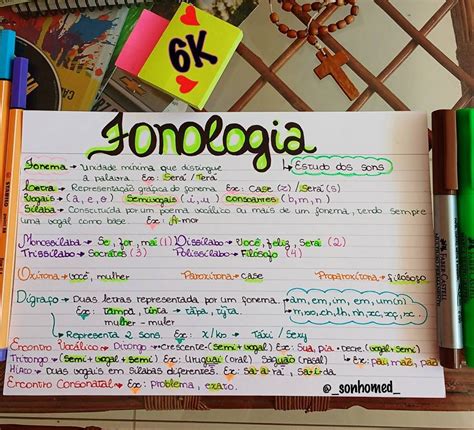 6K
Fonologia
Fonema → Unidade mínima que distingue → Estudo dos sons
a palavra. Ex: Será / Terá
Letra → Representação gráfica do fonema Ex: Case (z) / Será (s)
Vogais → (a, e, o) Semivogais (i, u) consoantes (b, m, n)
Sílaba → Constituída por um poema vocálico ou mais de um fonema, tendo sempre
uma vogal como base Ex: A-mor
Monossílaba → Se, flor, mai (1) Dissílabo → Você, feliz, será (2)
Trissílabo → Socrates (3) Polissílabo → Filósofo (4)
Oxítona → você, mulher Paroxítona → case Proparoxítona → filósofo
Dígrafo → Duas letras representada por um fonema. → am, em, im, em, um(n)
Ex: Tampa, tinta → tãpa, tĩta. → rr, xc, ch, lh, nh, xc, xç, sc.
mulher - muler
→ Representa 2 sons. Ex: x / ks → Táxi / Sexy
Encontro Vocálico → Ditongo → crescente (semi + vogal) Ex: Sua, pia → decre. (vogal + semi)
Tritongo → (semi + vogal + semi) Ex: Uruguai (oral) Saguão (nasal) ↳ Ex: pau, mae, pão
Hiato → Duas vogais em sílabas diferentes. Ex: sa-a-ra, sa-í-da
Encontro Consonatal → Ex: problema, exato.
@_sonhomed_
FABER-CASTELL